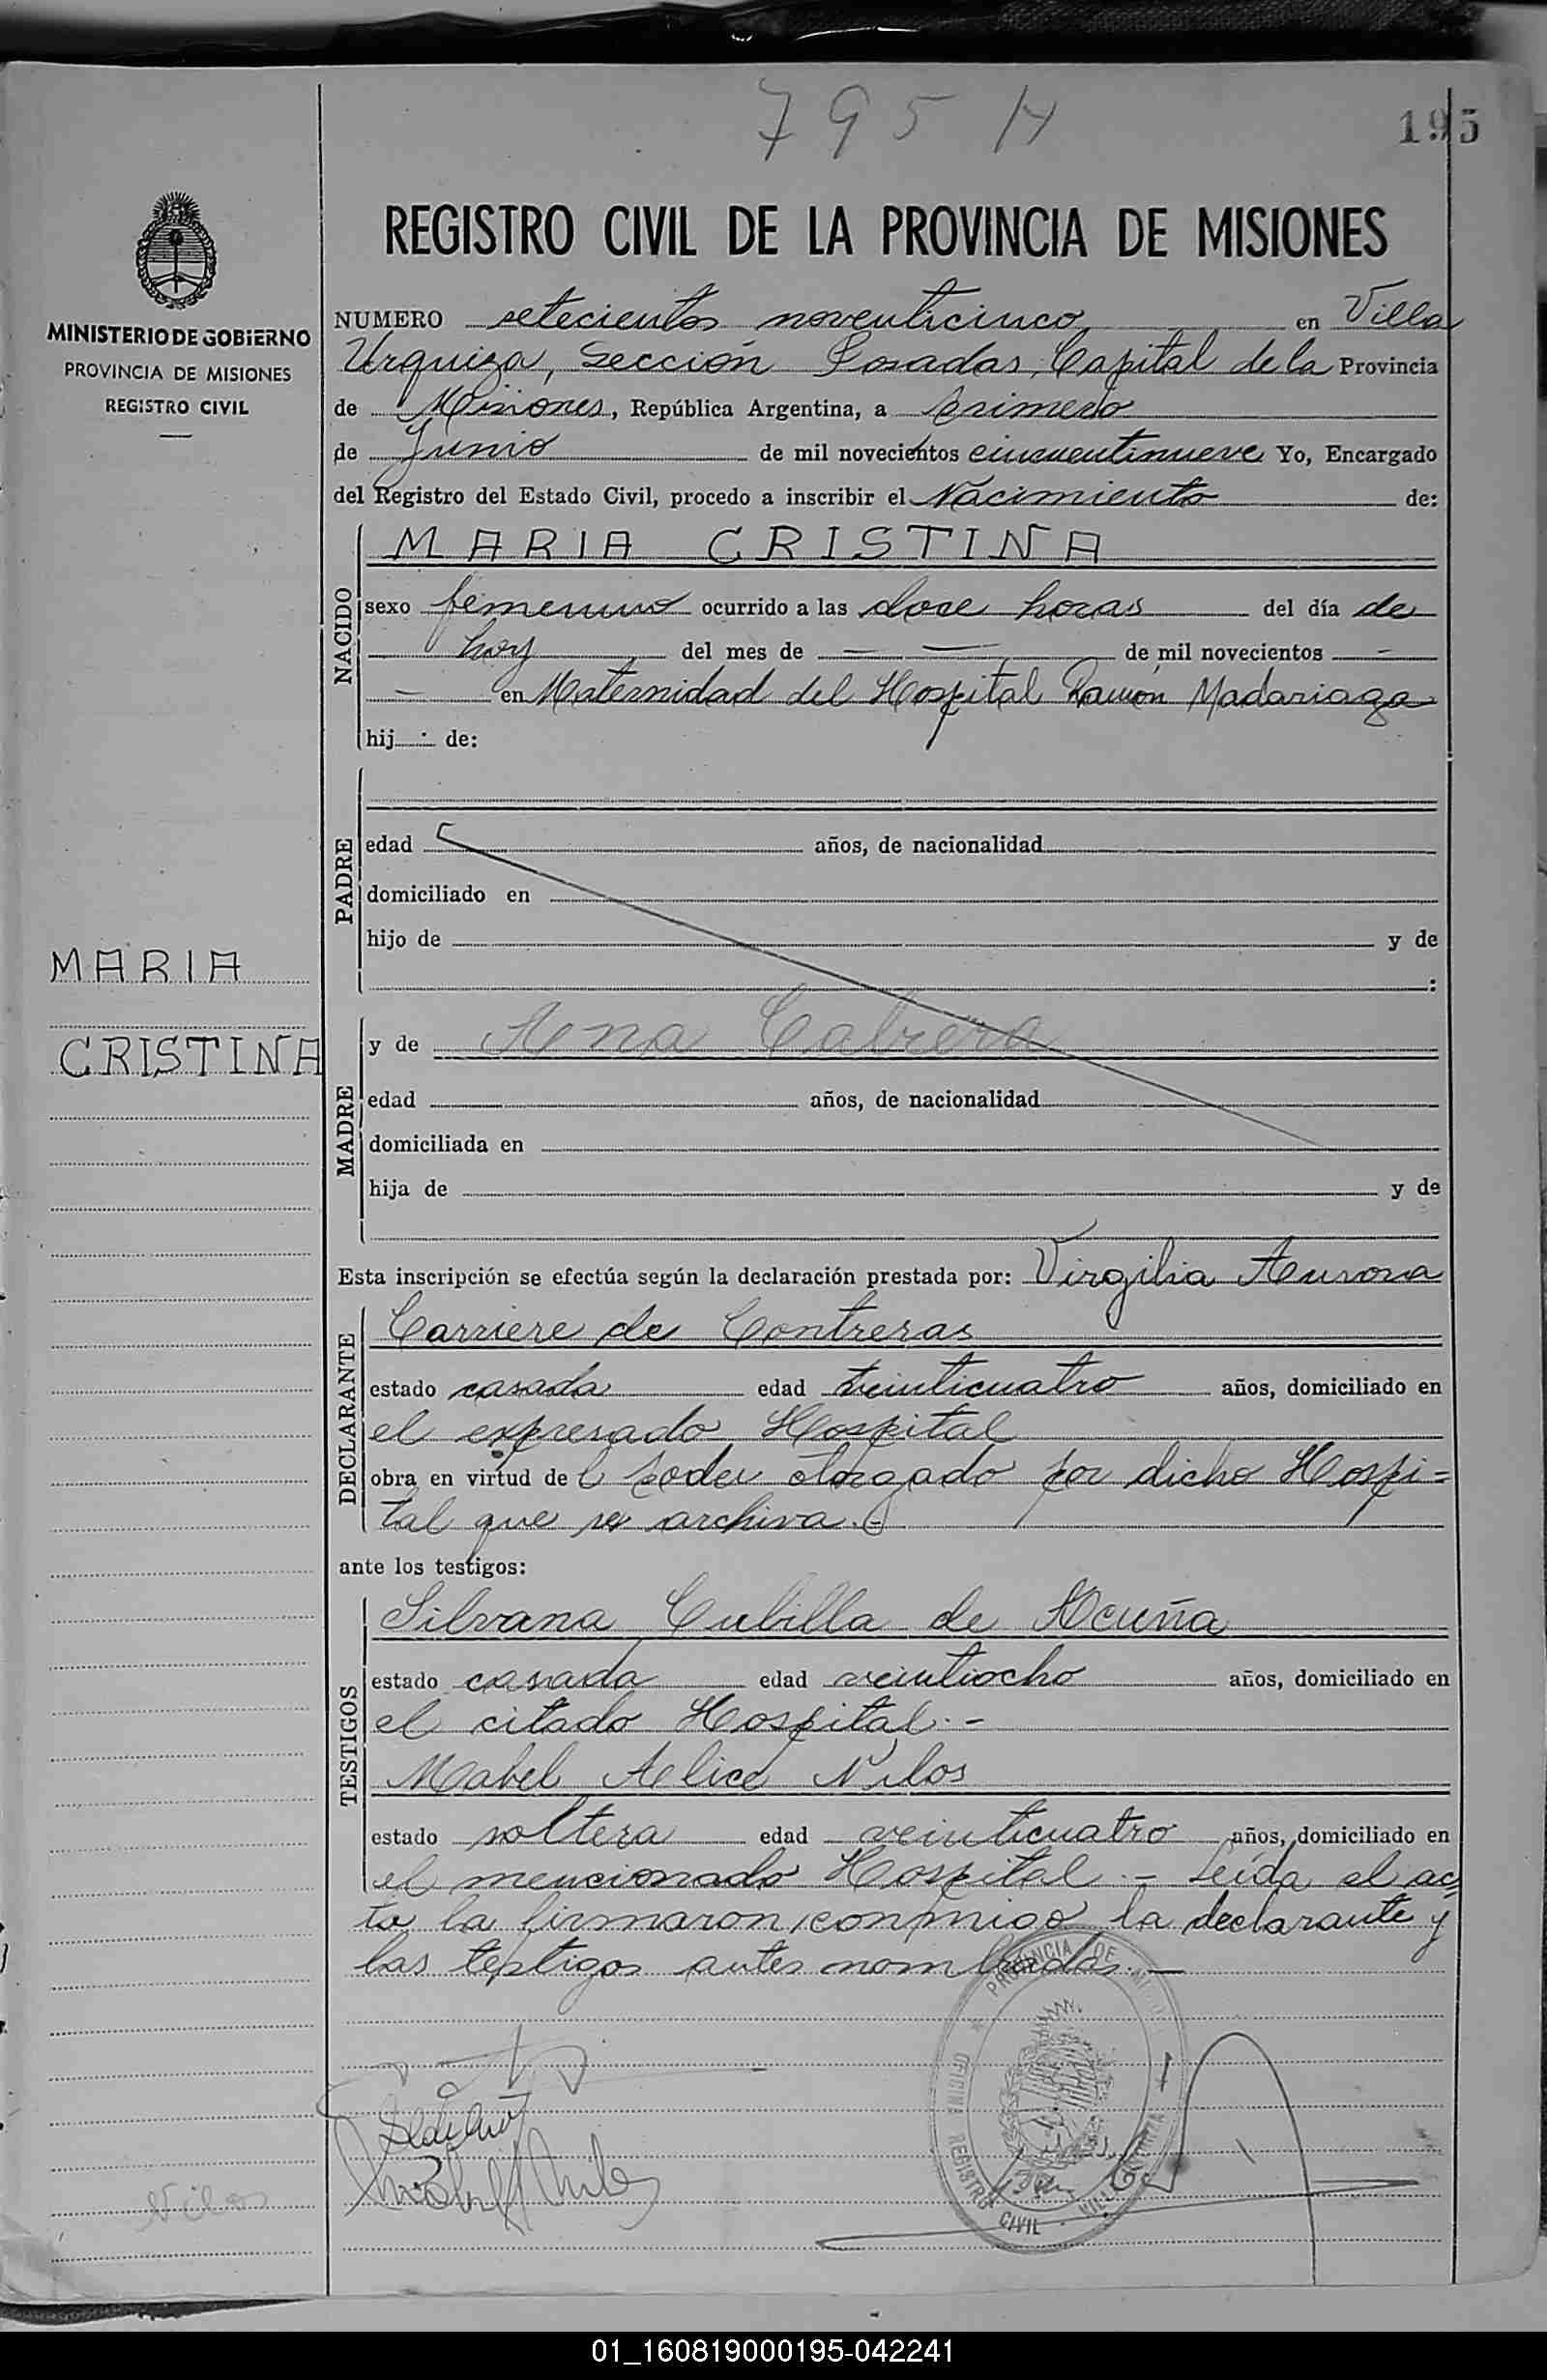 795 H
195
MINISTERIO DE GOBIERNO
PROVINCIA DE MISIONES
REGISTRO CIVIL
MARIA
CRISTINA
Nilos
REGISTRO CIVIL DE LA PROVINCIA DE MISIONES
NUMERO setecientos noventicinco en Villa
Urquiza, Sección Posadas, Capital de la Provincia
de Misiones, República Argentina, a primero
de Junio de mil novecientos cincuentinueve Yo, Encargado
del Registro del Estado Civil, procedo a inscribir el Nacimiento de:
NACIDO
MARIA CRISTINA
sexo femenino ocurrido a las doce horas del día de
hoy del mes de — — de mil novecientos —
— en Maternidad del Hospital Ramón Madariaga
hij de:
PADRE
edad años, de nacionalidad
domiciliado en
hijo de y de
:
MADRE
y de Ana Cabrera
edad años, de nacionalidad
domiciliada en
hija de y de
Esta inscripción se efectúa según la declaración prestada por: Virgilia Aurora
DECLARANTE
Carriere de Contreras
estado casada edad veinticuatro años, domiciliado en
el expresado Hospital
obra en virtud de l poder otorgado por dicho Hospi=
tal que se archiva.-
ante los testigos:
TESTIGOS
Silvana Cubilla de Acuña
estado casada edad veintiocho años, domiciliado en
el citado Hospital.-
Mabel Alice Nilos
estado soltera edad veinticuatro años, domiciliado en
el mencionado Hospital.- Leída el ac
ta la firmaron conmigo la declarante y
las testigos antes nombradas.—
PROVINCIA DE MISIONES
OFICINA REGISTRO CIVIL - VILLA URQUIZA
01_160819000195-042241